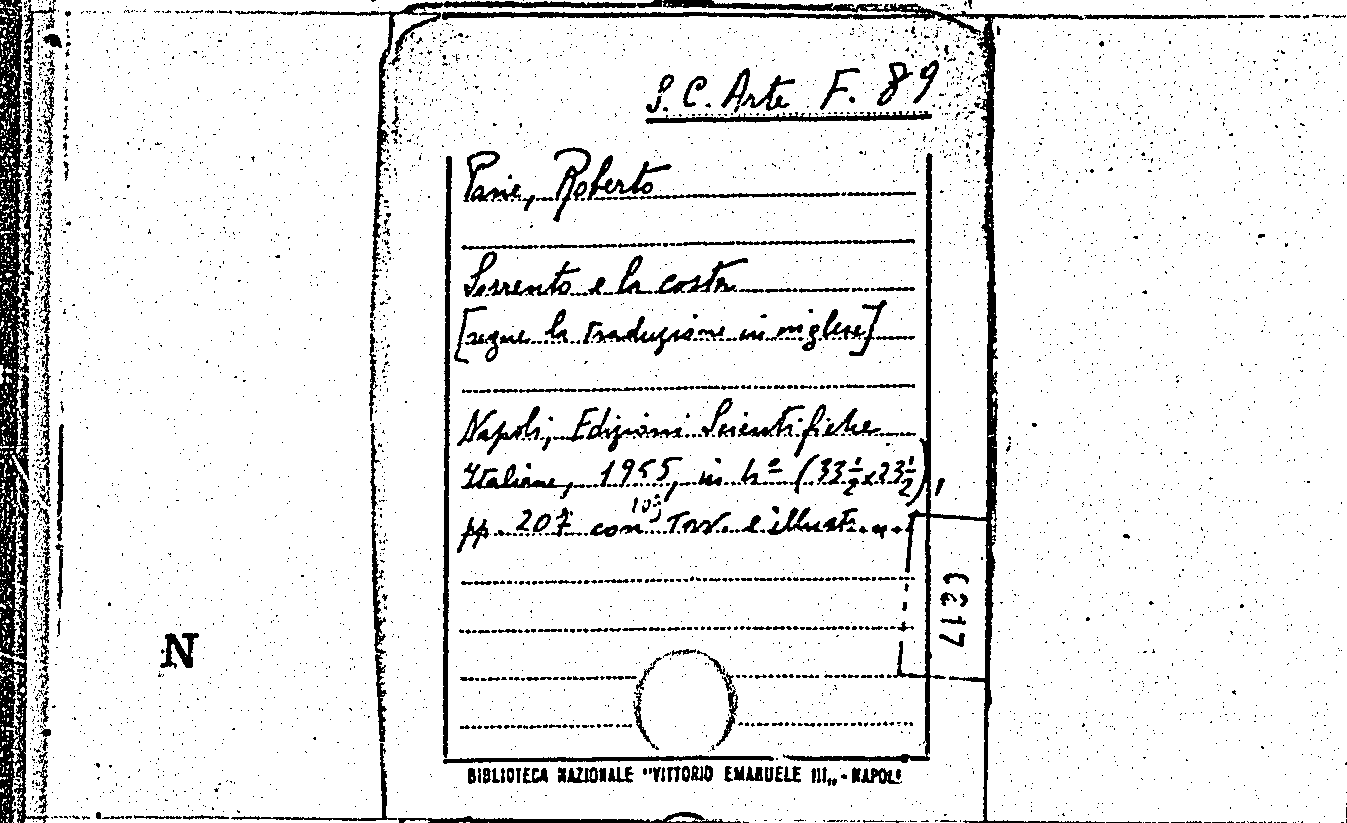 S. C. Arte F. 89
Pane, Roberto
Sorrento e la costa
[segue la traduzione in inglese]
Napoli, Edizioni Scientifiche
Italiane, 1955, in 4º (33½x23½),
pp. 207 con 103 Tav. e illustr.
N
BIBLIOTECA NAZIONALE "VITTORIO EMANUELE III„ - NAPOLI